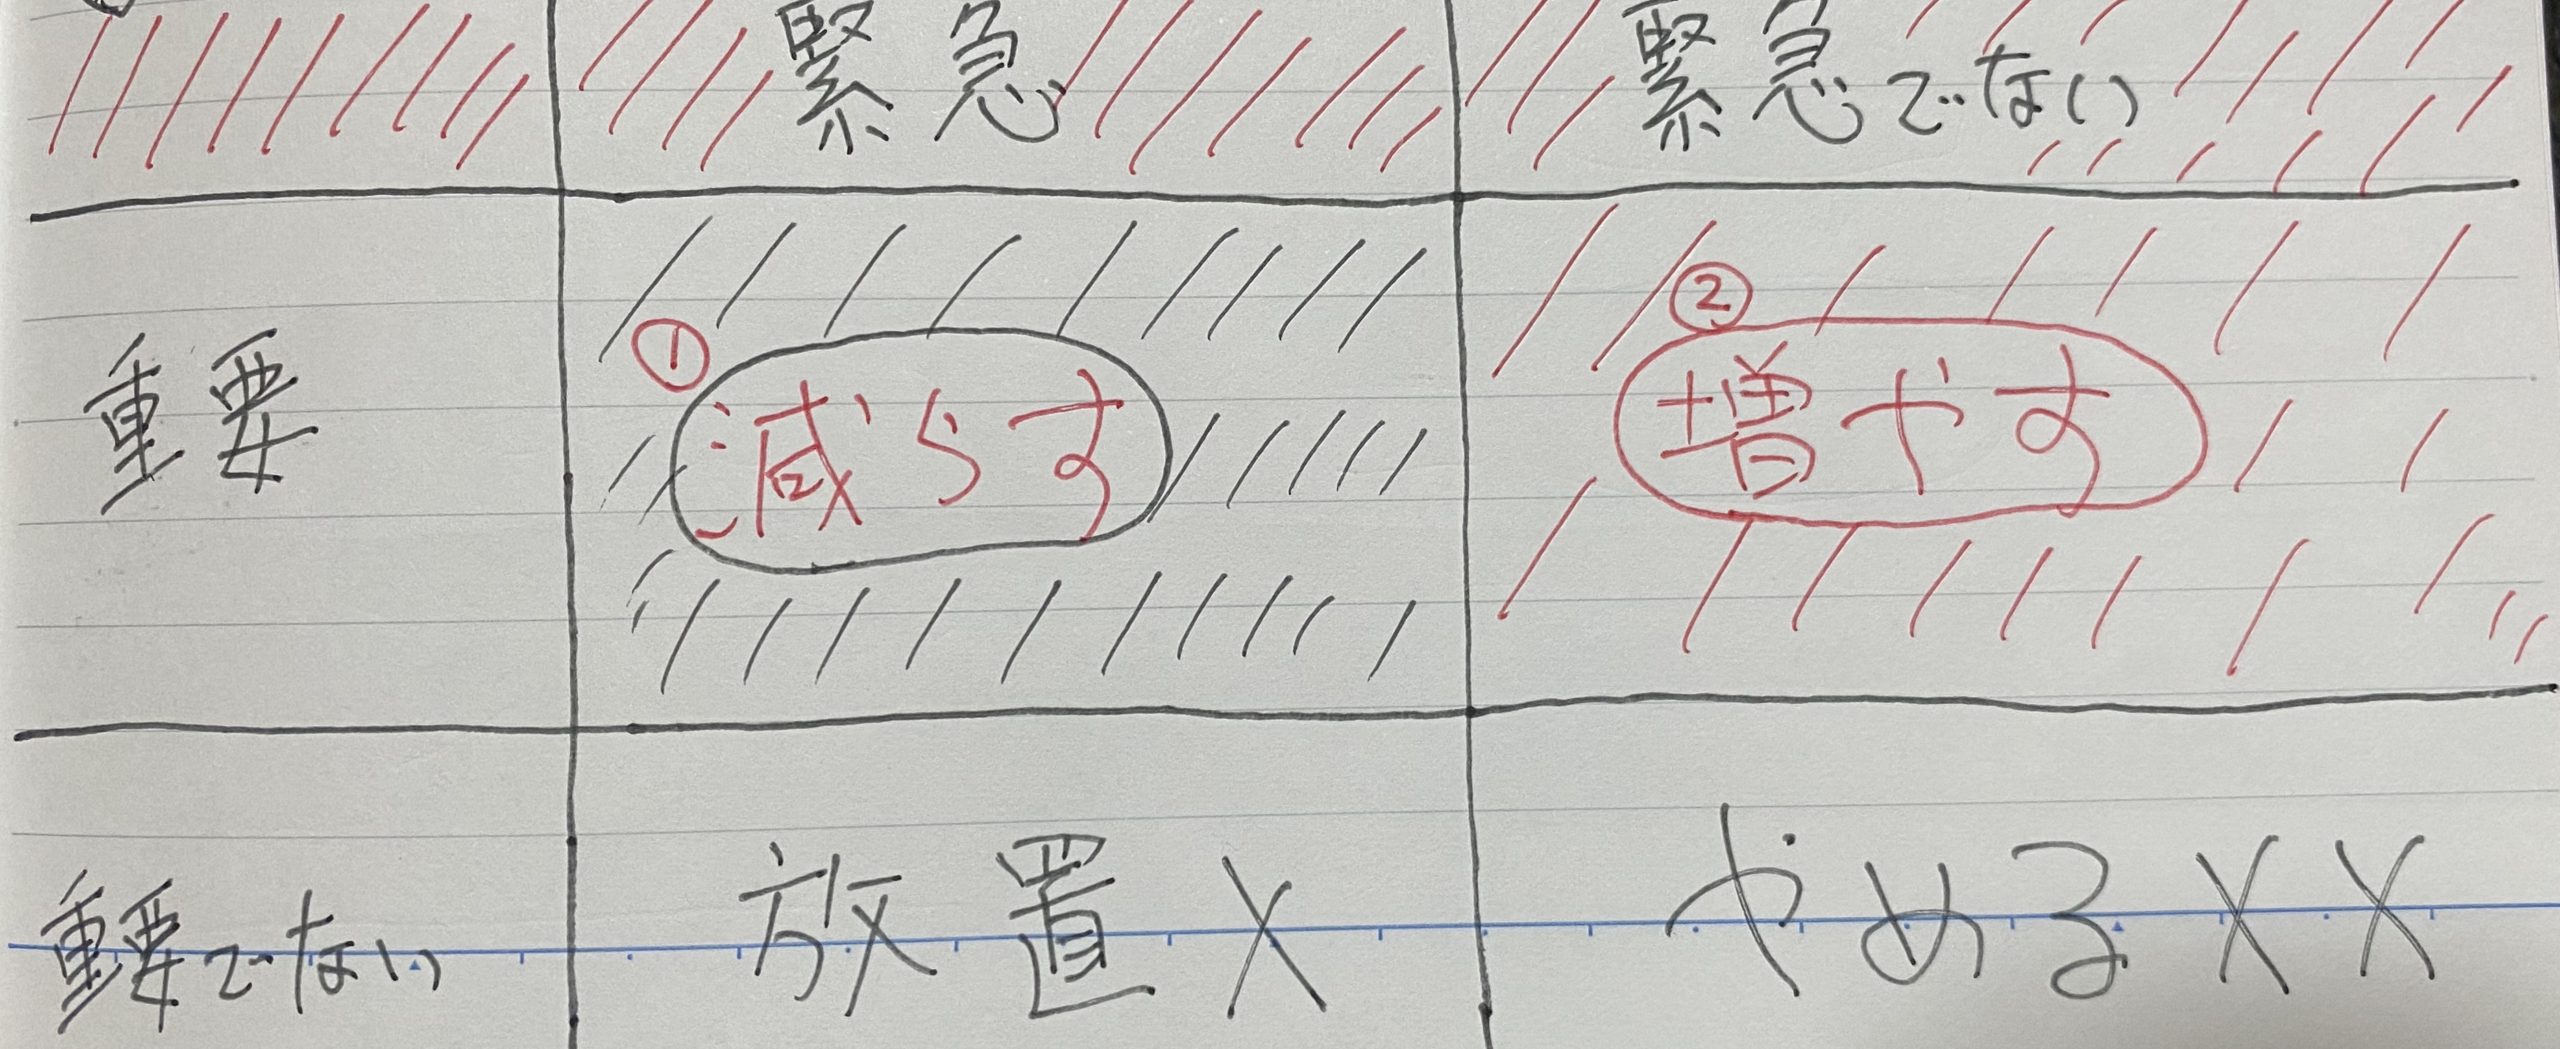 緊急 緊急でない
重要 ①減らす ②増やす
重要でない 放置X やめるXX